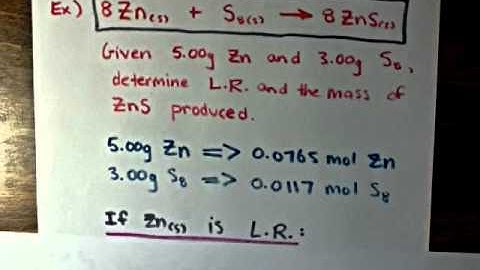 Ex) 8 Zn(s) + S8(s) → 8 ZnS(s)
Given 5.00g Zn and 3.00g S8,
determine L.R. and the mass of
ZnS produced.
5.00g Zn => 0.0765 mol Zn
3.00g S8 => 0.0117 mol S8
If Zn(s) is L.R.: